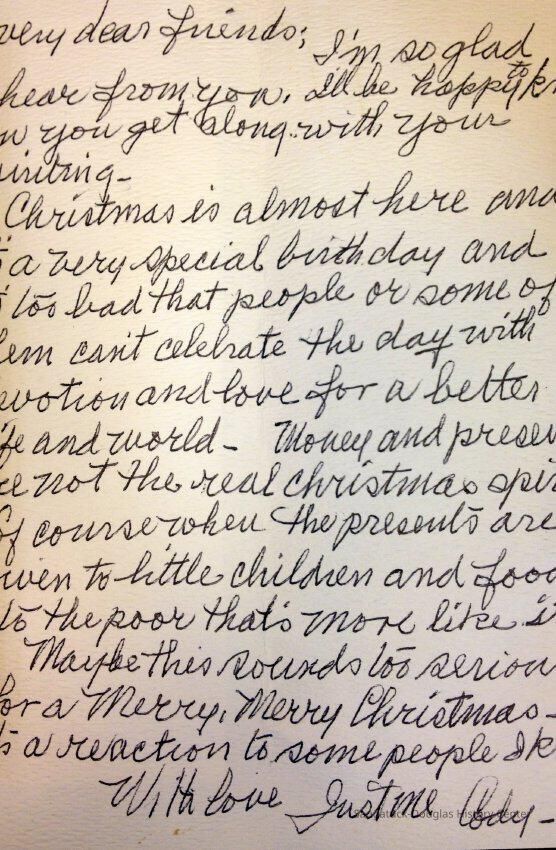 very dear friends; I'm so glad
hear from you. I'll be happy to k
w you get along with your
writing-
Christmas is almost here and
s a very special birthday and
s too bad that people or some of
hem can't celebrate the day with
evotion and love for a better
ife and world- Money and presen
re not the real christmas spir
Of course when the presents are
iven to little children and food
to the poor that's more like i
Maybe this sounds too seriou
for a Merry, Merry Christmas-
t's a reaction to some people I k
With love Just me Cody-
Saugatuck-Douglas History Center